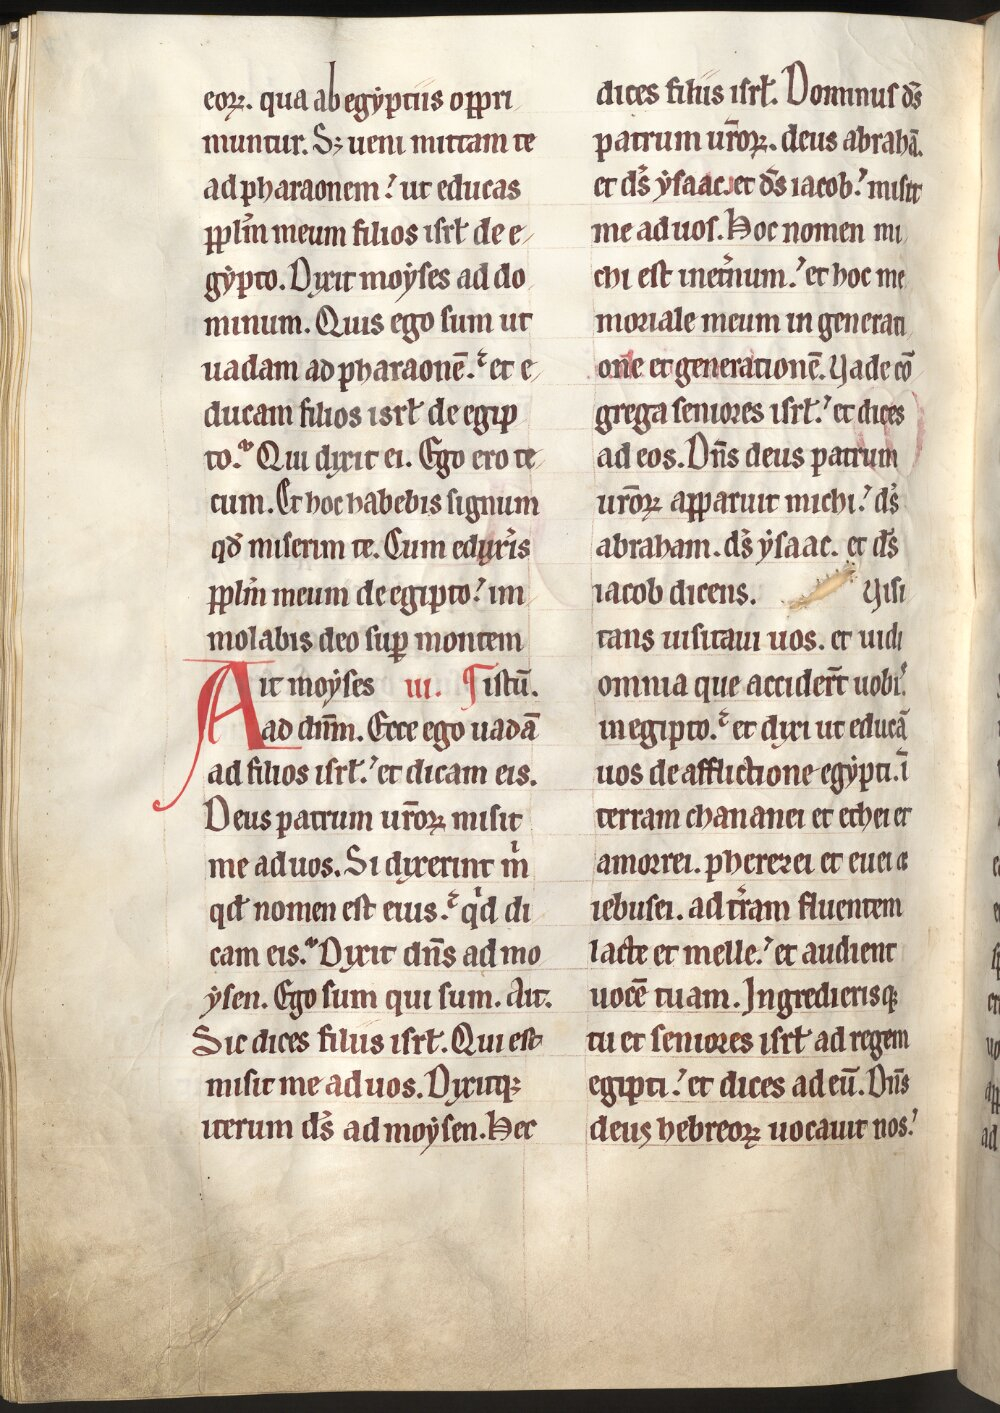 eoꝝ. qua ab egẏptiis oppri
muntur. Sꝫ ueni mittam te
ad pharaonem? ut educas
pplm̄ meum filios isrł de e
gẏpto. Dixit moẏses ad do
minum. Quis ego sum ut
uadam ad pharaonē. et e
ducam filios isrł de egip
to. Qui dixit ei. Ego ero te
cum. Et hoc habebis signum
qđ miserim te. Cum eduxis
pplm̄ meum de egipto? im
molabis deo suꝑ montem
Ait moẏses iii. ¶ istū.
ad dn̄m. Ecce ego uadā
ad filios isrł.? et dicam eis.
Deus patrum ur̄oꝝ misit
me ad uos. Si dixerint m̍
qđ nomen est eius. q̍d di
cam eis. Dixit dn̄s ad mo
ẏsen. Ego sum qui sum. Ait.
Sic dices filiis isrł. Qui est
misit me ad uos. Dixitqꝫ
iterum ds̄ ad moẏsen. Hec
dices filiis isrł. Dominus ds̄
patrum ur̄oꝝ. deus abrahā.
et ds̄ ẏsaac. et ds̄ iacob? misit
me ad uos. Hoc nomen mi
chi est inet̄num.? et hoc me
moriale meum in generati
one et generationē. Uade cō
grega seniores isrł.? et dices
ad eos. Dn̄s deus patrum
ur̄oꝝ apparuit michi? ds̄
abraham. ds̄ ẏsaac. et ds̄
iacob dicens. Uisi
tans uisitaui uos. et uidi
omnia que accider̄t uobis.
in egipto. et dixi ut educā
uos de afflictione egẏpti. ī
terram chananei et ethei et
amorrei. pherezei et euei et
iebusei. ad tr̄am fluentem
lacte et melle.? et audient
uocē tuam. Ingredierisqꝫ
tu et seniores isrł ad regem
egipti? et dices ad eū. Dn̄s
deus hebreoꝝ uocauit nos?